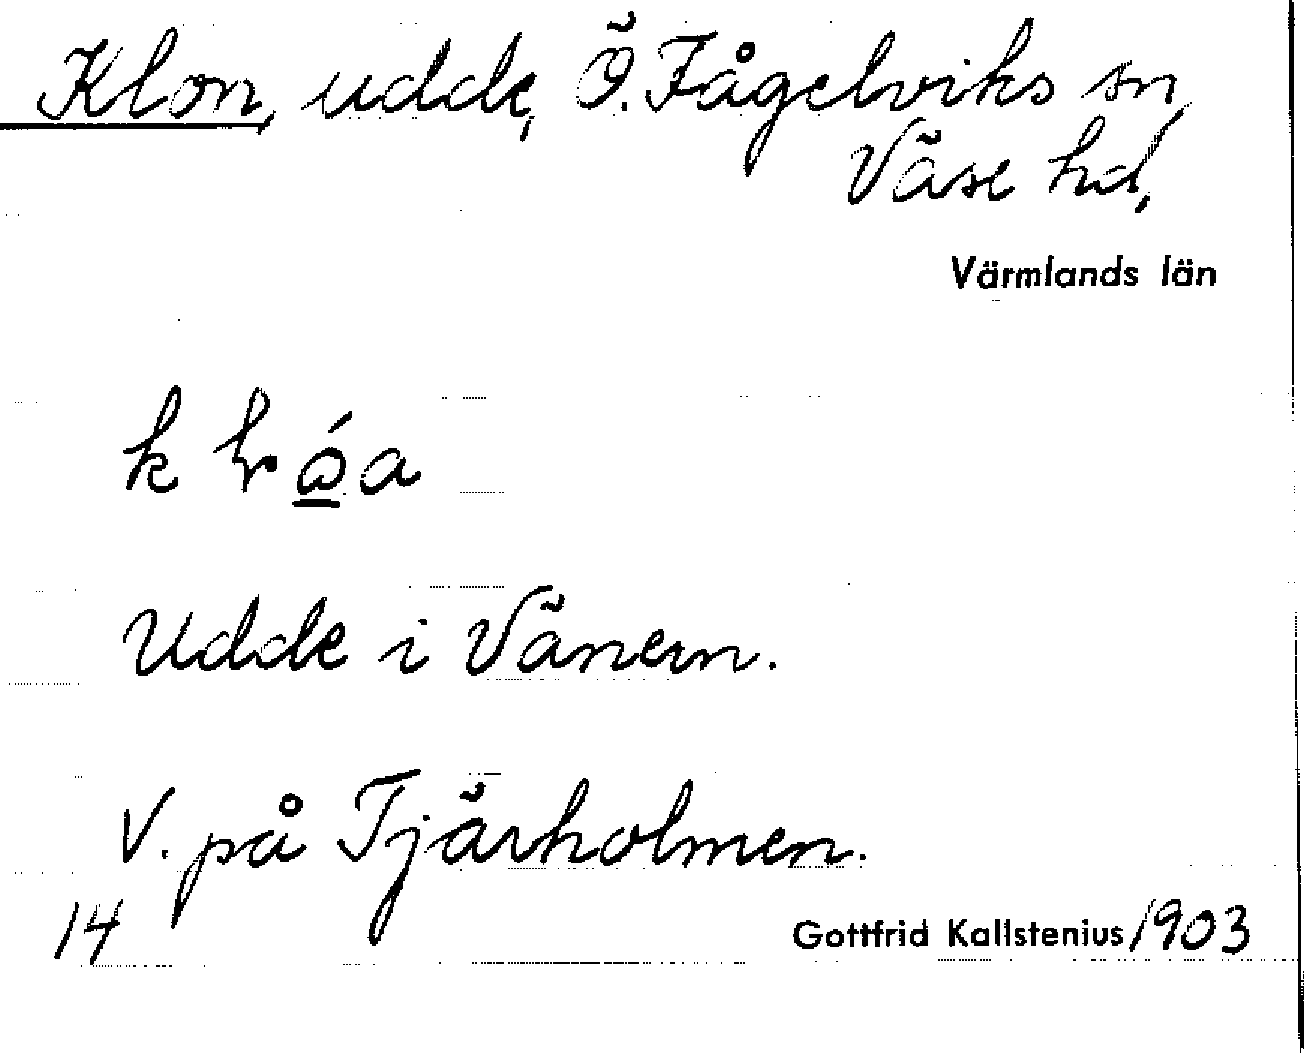 Klon, udde, Ö. Fågelviks sn,
Väse hd,
Värmlands län
Udde i Vänern.
V. på Tjärholmen.
14 Gottfrid Kallstenius 1903